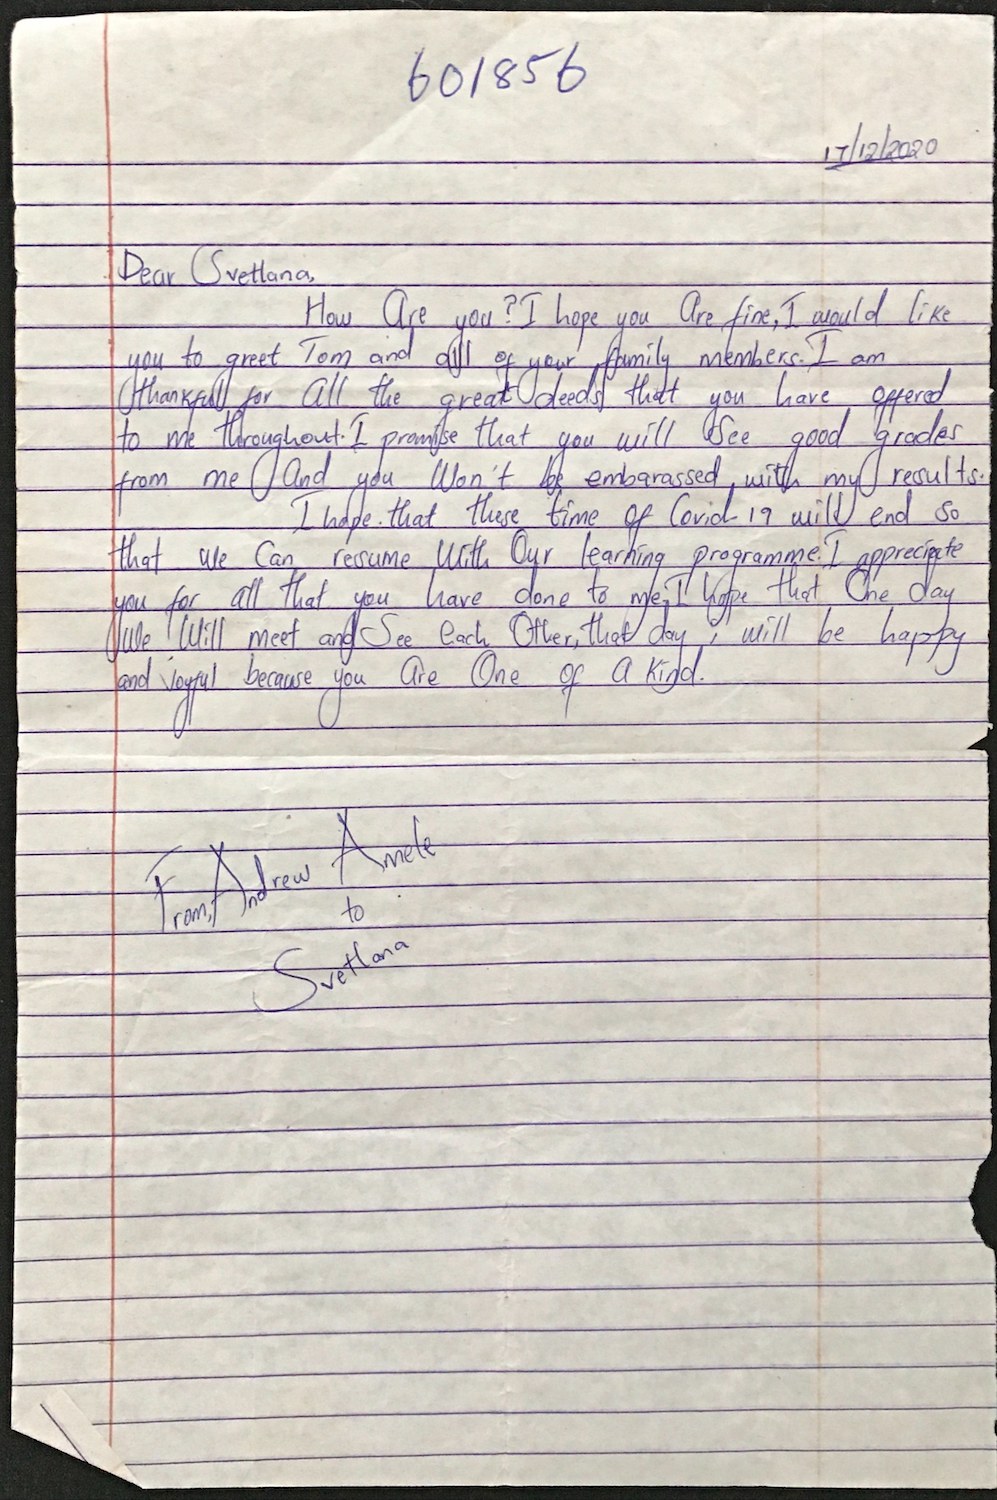 601856
17/12/2020
Dear Svetlana,
How Are you? I hope you Are fine, I would like
you to greet Tom and all of your family members. I am
thankfull for All the great deeds that you have offered
to me throughout. I promise that you will See good grades
from me And you Won't be embarassed with my results.
I hope that these time of Covid-19 will end so
that we Can resume With Our learning programme. I appreciate
you for all that you have done to me, I hope that One day
We Will meet and See Each Other, that day i will be happy
and joyful because you Are One of A Kind.
From, Andrew Amele
to
Svetlana